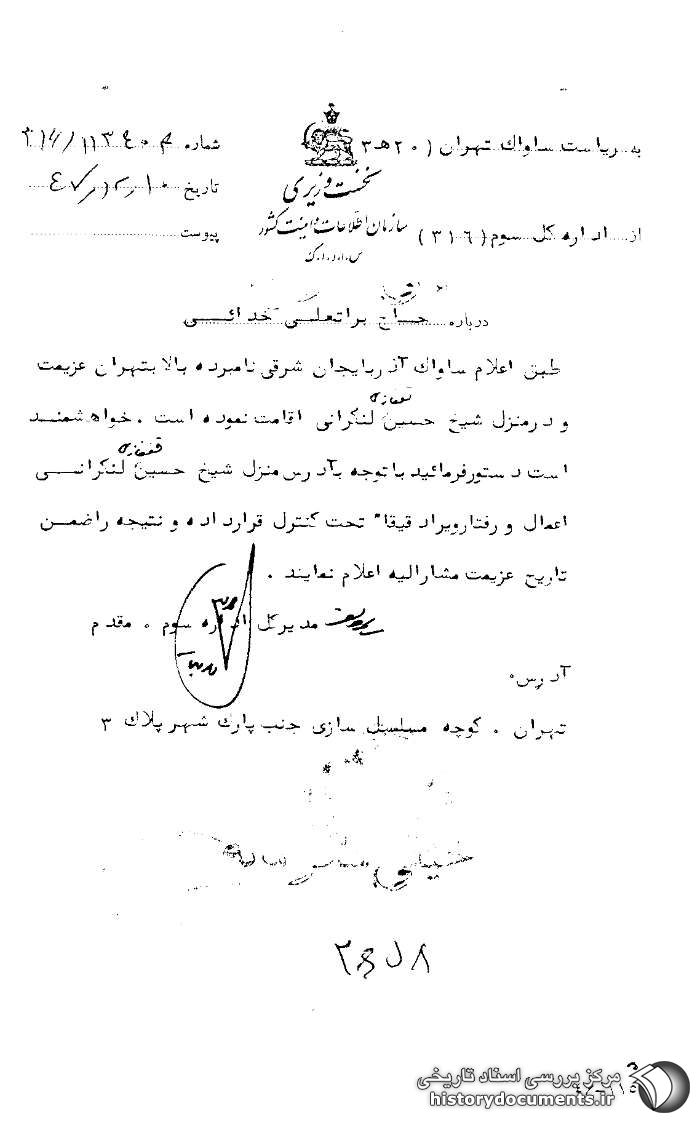 به ریاست ساواک تهران (۲۰ ه ۳
شماره
نخست وزیری
تاریخ
سازمان اطلاعات و امنیت کشور
از اداره کل سوم (۳۱۶)
پیوست
س.ا.و.ا.ک
درباره حاج براتعلی خدائی
طبق اعلام ساواک آذربایجان شرقی نامبرده بالا بتهران عزیمت
و در منزل شیخ حسین لنکرانی اقامت نموده است . خواهشمند
است دستور فرمائید با توجه بآدرس منزل شیخ حسین لنکرانی
اعمال و رفتار ویرا دقیقا" تحت کنترل قرار داده و نتیجه را ضمن
تاریخ عزیمت مشارالیه اعلام نمایند .
مدیر کل اداره سوم . مقدم
آدرس
تهران . کوچه مسلسل سازی جنب پارک شهر پلاک ۳
مرکز بررسی اسناد تاریخی
historydocuments.ir